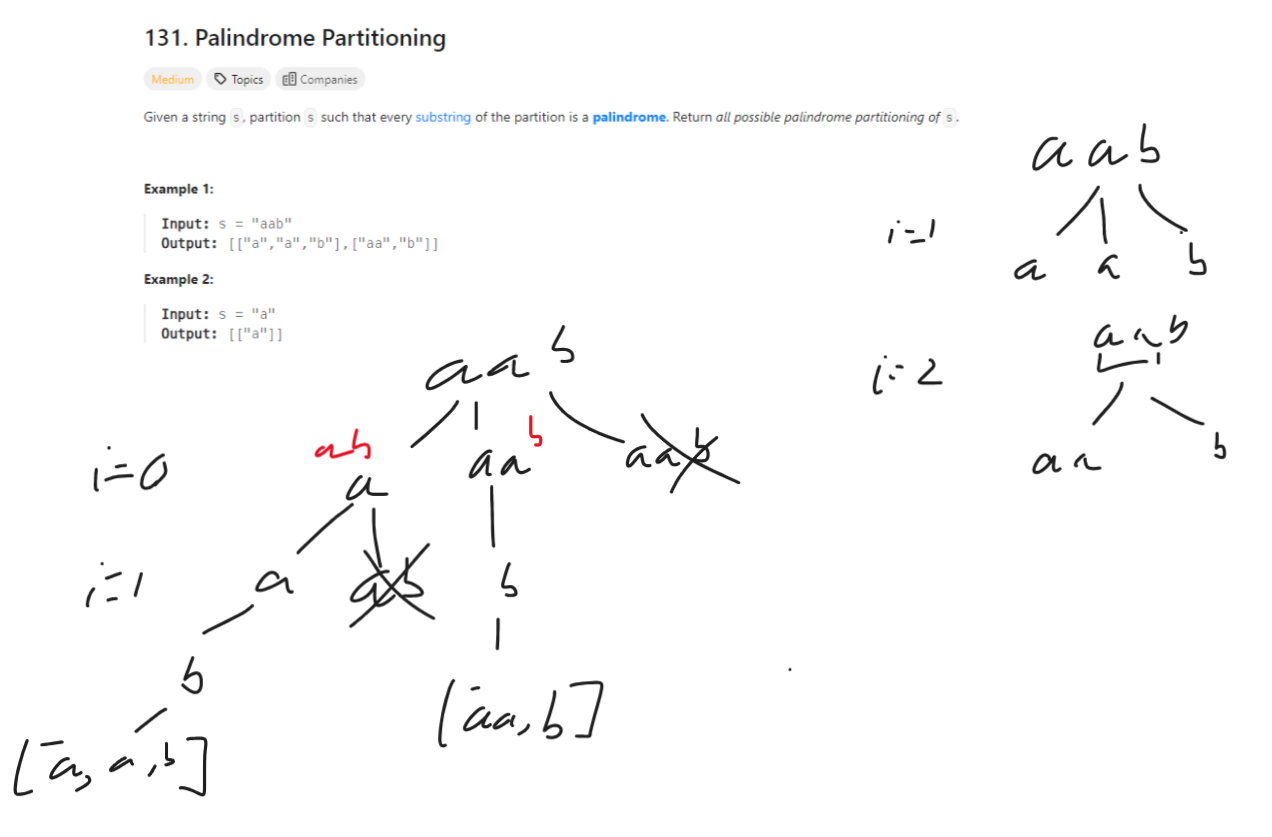 131. Palindrome Partitioning
Medium Topics Companies
Given a string s, partition s such that every substring of the partition is a palindrome. Return all possible palindrome partitioning of s.
Example 1:
Input: s = "aab"
Output: [["a","a","b"],["aa","b"]]
Example 2:
Input: s = "a"
Output: [["a"]]
aab
i=1
a a b
aab
i=2
aa b
aab
i=0
ab
a
aa b
aab
i=1
a
ab
b
b
[a, a, b]
[aa, b]